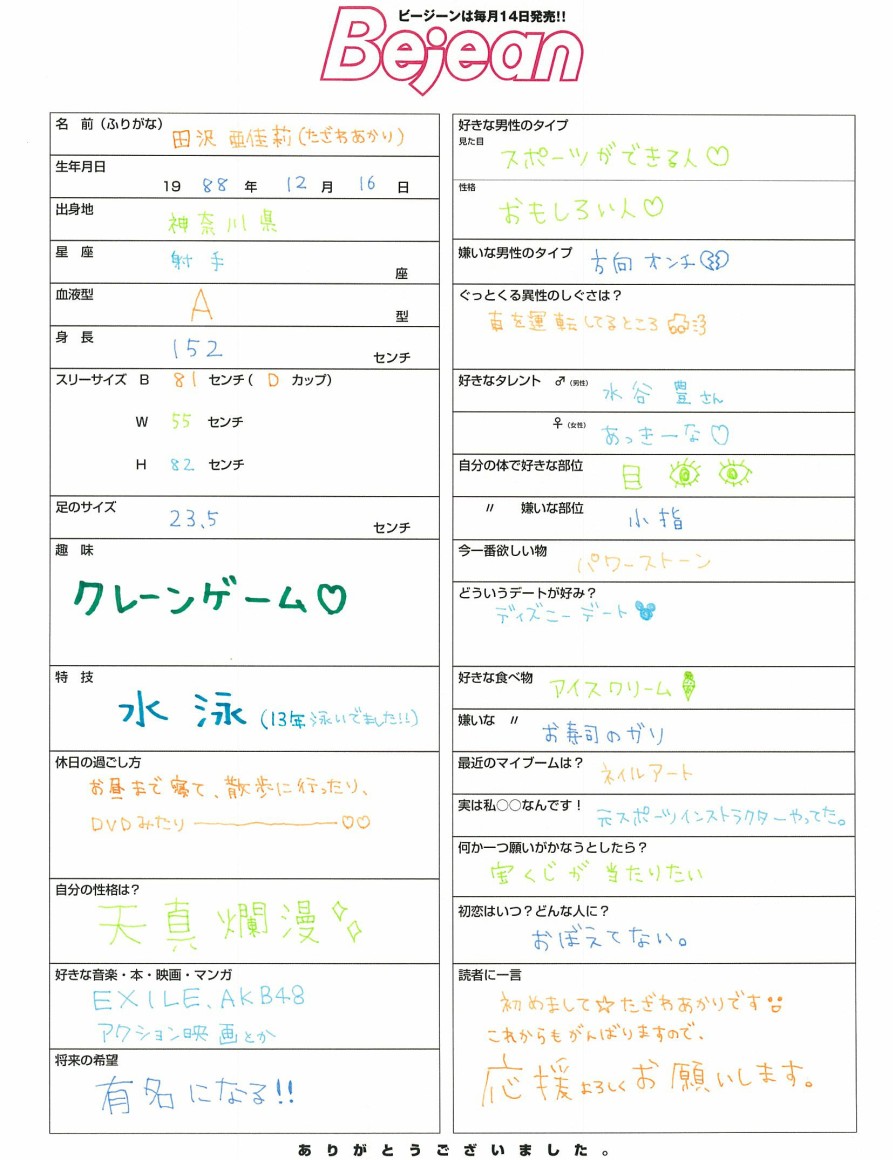 ビージーンは毎月14日発売!!
Bejean
名 前(ふりがな) 田沢 亜佳莉(たざわあかり)
生年月日
19 88 年 12 月 16 日
出身地 神奈川県
星 座 射手 座
血液型 A 型
身 長 152 センチ
スリーサイズ B 81 センチ( D カップ)
W 55 センチ
H 82 センチ
足のサイズ 23.5 センチ
趣 味
クレーンゲーム♡
特 技
水 泳 (13年泳いでました!!)
休日の過ごし方
お昼まで寝て、散歩に行ったり、
DVDみたり ――――♡♡
自分の性格は?
天真爛漫
好きな音楽・本・映画・マンガ
EXILE、AKB48
アクション映画とか
将来の希望
有名になる!!
好きな男性のタイプ
見た目 スポーツができる人♡
性格 おもしろい人♡
嫌いな男性のタイプ 方向オンチ
ぐっとくる異性のしぐさは?
車を運転してるところ
好きなタレント ♂(男性) 水谷 豊さん
♀(女性) あっきーな♡
自分の体で好きな部位 目
〃 嫌いな部位 小指
今一番欲しい物 パワーストーン
どういうデートが好み?
ディズニーデート
好きな食べ物 アイスクリーム
嫌いな 〃 お寿司のガリ
最近のマイブームは? ネイルアート
実は私○○なんです! 元スポーツインストラクターやってた。
何か一つ願いがかなうとしたら?
宝くじが当たりたい
初恋はいつ?どんな人に?
おぼえてない。
読者に一言
初めまして☆たざわあかりです
これからもがんばりますので、
応援よろしくお願いします。
ありがとうございました。